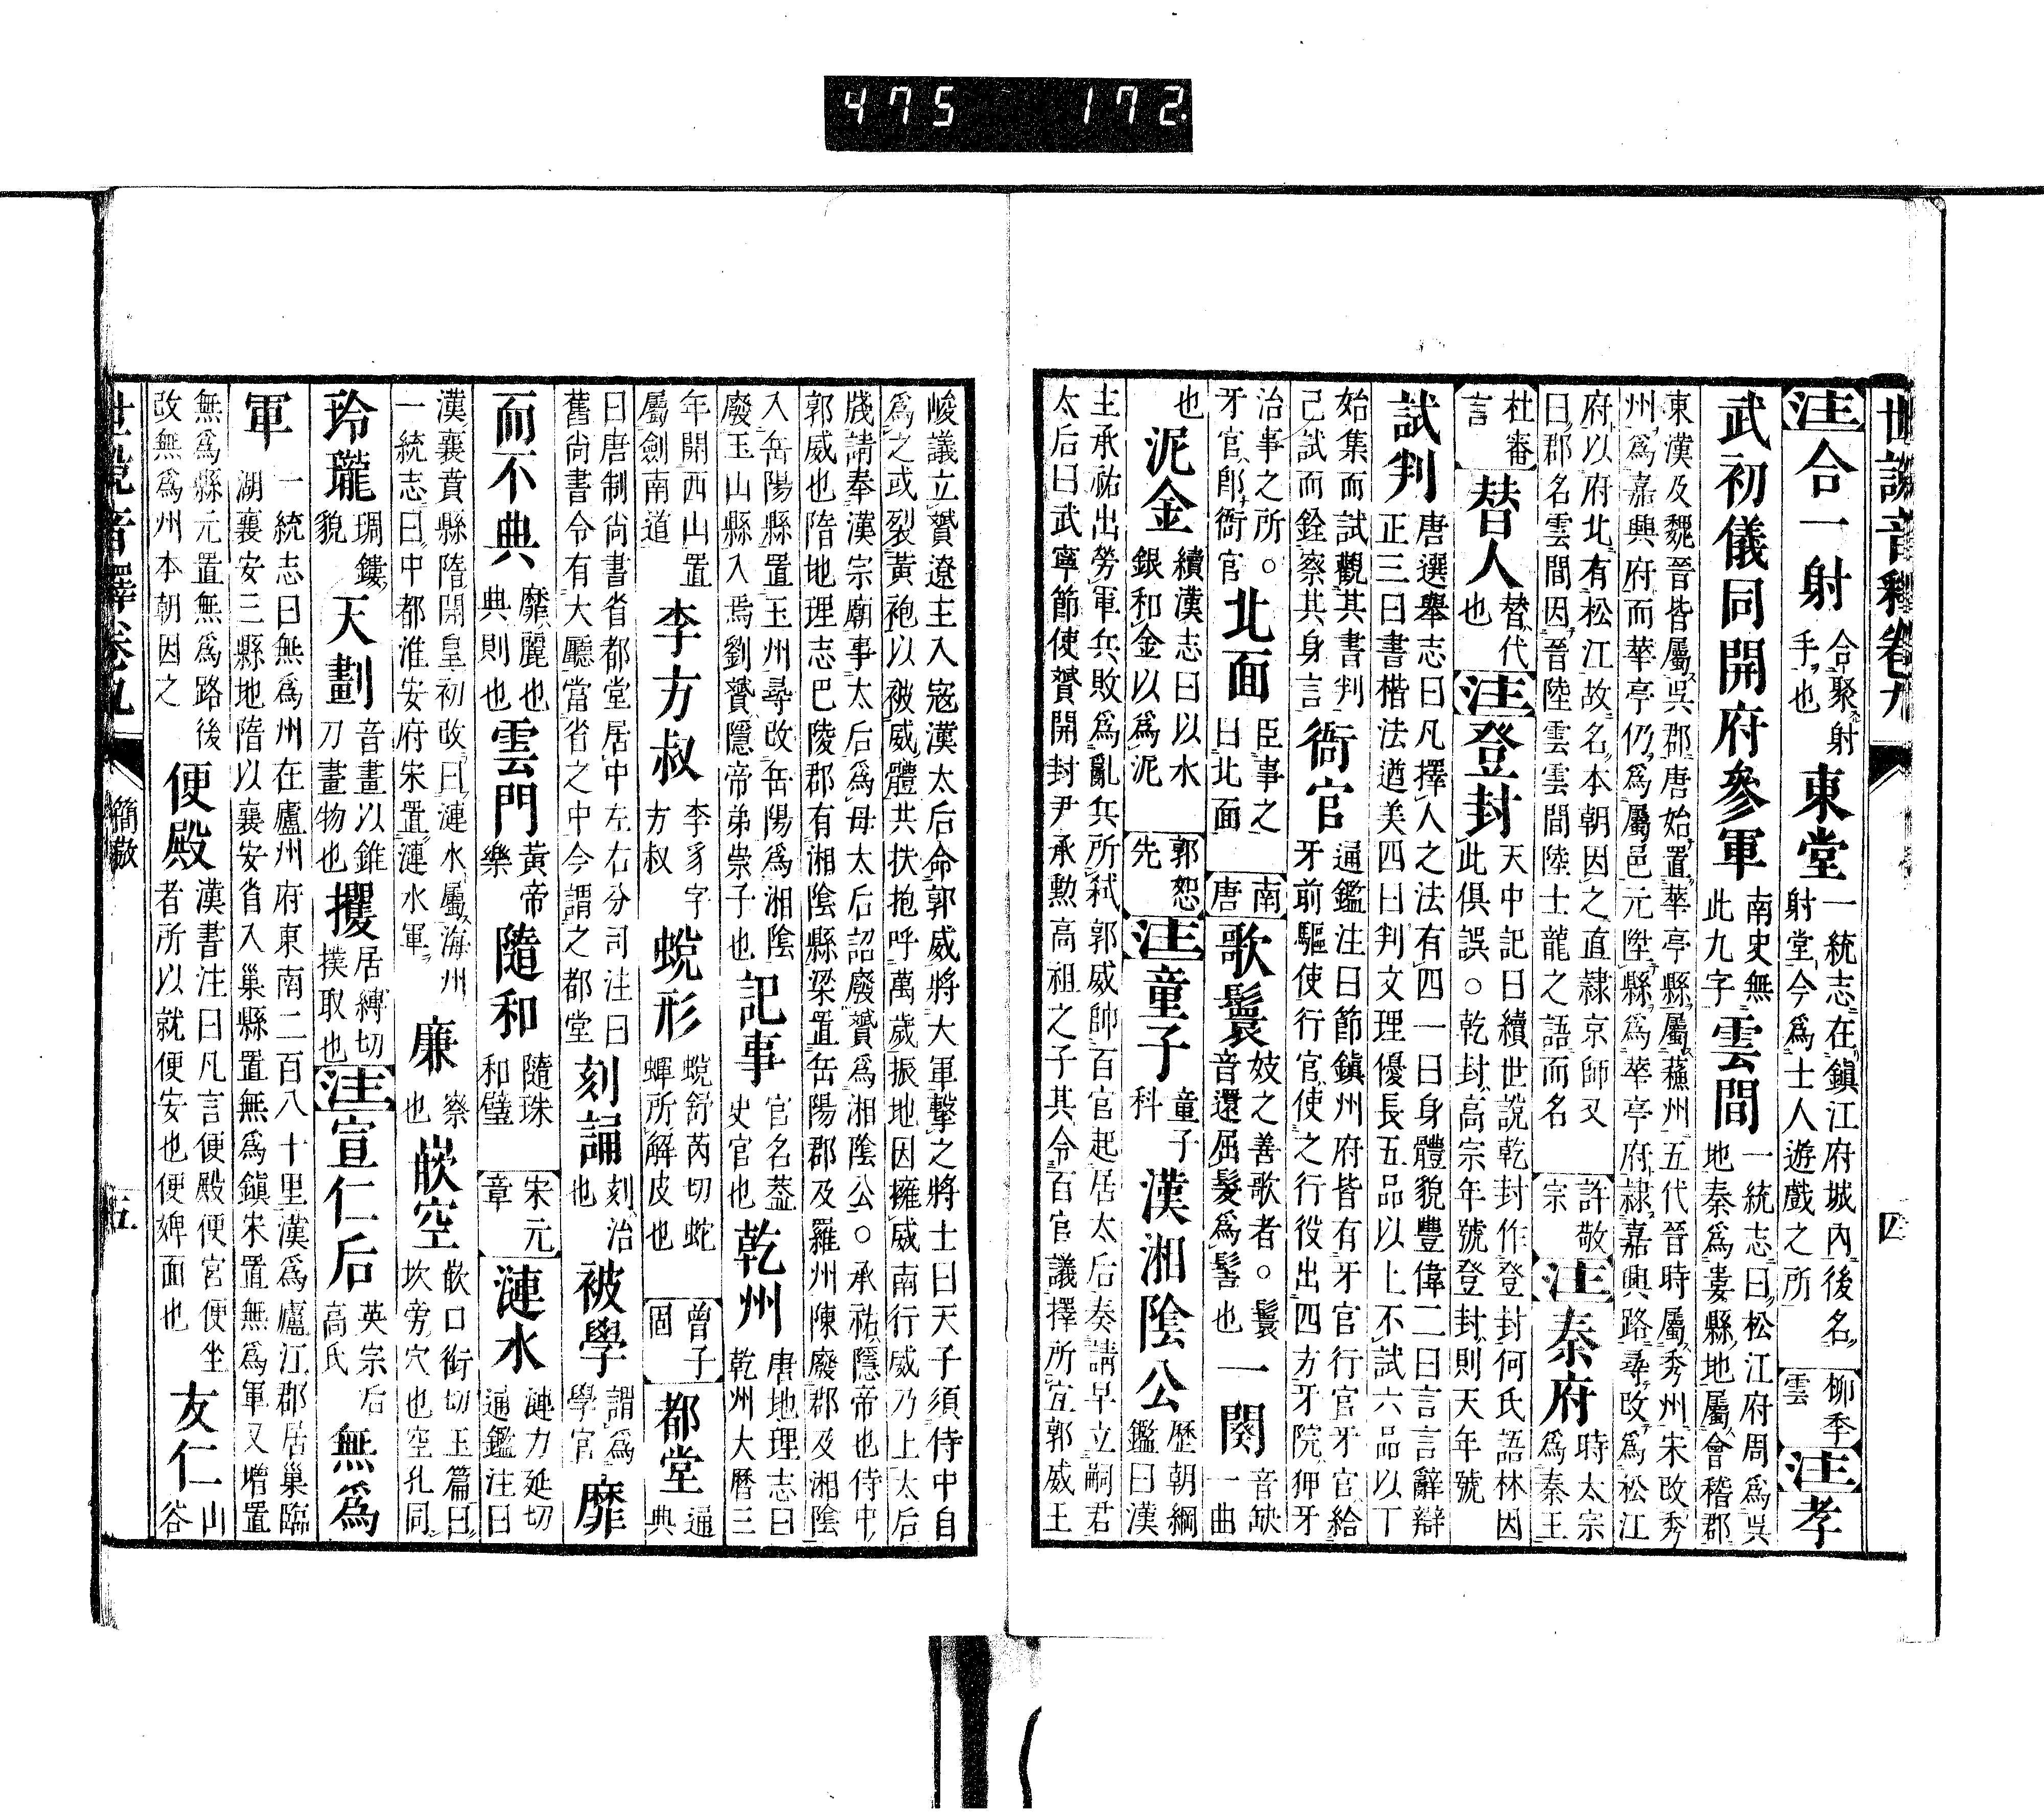 475 172.
世說音釋卷九 四
注合一射 合聚射手也 東堂 一統志在鎮江府城內後名射堂今為士人遊戲之所 柳季雲 注孝
武初儀同開府參軍 南史無此九字 雲間 一統志曰松江府周為吳地秦為婁縣地屬會稽郡
東漢及魏晉皆屬吳郡唐始置華亭縣屬蘇州五代晉時屬秀州宋改秀州為嘉興府而華亭仍為屬邑元陞縣為華亭府隷嘉興路尋改為松江
府以府北有松江故名本朝因之直隷京師又曰郡名雲間因晉陸雲雲間陸士龍之語而名 許敬宗 注秦府 時太宗為秦王
杜審言 替人 替代也 注登封 天中記曰續世說乾封作登封何氏語林因此俱誤。乾封高宗年號登封則天年號
試判 唐選舉志曰凡擇人之法有四一曰身體貌豐偉二曰言言辭辯正三曰書楷法遒美四曰判文理優長五品以上不試六品以丁
始集而試觀其書判己試而銓察其身言 衙官 通鑑注曰節鎮州府皆有牙官行官牙官給牙前驅使行官使之行役出四方牙院狎牙
治事之所。牙官郎衙官 北面 臣事之曰北面 南唐 歌鬟 妓之善歌者。鬟音還屈髮為髻也 一闋 音缺一曲
也 泥金 續漢志曰以水銀和金以為泥 郭恕先 注童子 童子科 漢湘陰公 歷朝綱鑑曰漢
主承祐出勞軍兵敗為亂兵所弒郭威帥百官起居太后奏請早立嗣君太后曰武寧節使贇開封尹承勲高祖之子其令百官議擇所宜郭威王
峻議立贇遼主入寇漢太后命郭威將大軍擊之將士曰天子須侍中自為之或裂黃袍以被威體共扶抱呼萬歲振地因擁威南行威乃上太后
牋請奉漢宗廟事太后為母太后詔廢贇為湘陰公。承祐隱帝也侍中郭威也隋地理志巴陵郡有湘陰縣梁置岳陽郡及羅州陳廢郡及湘陰
入岳陽縣置玉州尋改岳陽為湘陰廢玉山縣入焉劉贇隱帝弟崇子也 記事 官名蓋史官也 乾州 唐地理志曰乾州大曆三
年開西山置屬劍南道 李方叔 李豸字方叔 蛻形 蛻舒芮切蛇蟬所解皮也 曾子固 都堂 通典
曰唐制尚書省都堂居中左右分司注曰舊尚書令有大廳當省之中今謂之都堂 刻誦 刻治也 被學 謂為學官 靡
而不典 靡麗也典則也 雲門 黃帝樂 隨和 隨珠和璧 宋元章 漣水 漣力延切通鑑注曰
漢襄賁縣隋開皇初改曰漣水屬海州一統志曰中都淮安府宋置漣水軍 廉 察也 嵌空 嵌口銜切玉篇曰坎旁穴也空孔同
玲瓏 琱鏤貌 天劃 音畫以錐刀畫物也 攫 居縛切撲取也 注宣仁后 英宗后高氏 無為
軍 一統志曰無為州在廬州府東南二百八十里漢為廬江郡居巢臨湖襄安三縣地隋以襄安省入巢縣置無為鎮宋置無為軍又增置
無為縣元置無為路後改無為州本朝因之 便殿 漢書注曰凡言便殿便宮便坐者所以就便安也便婢面也 友仁 山谷
世說音釋卷九 簡敖 五